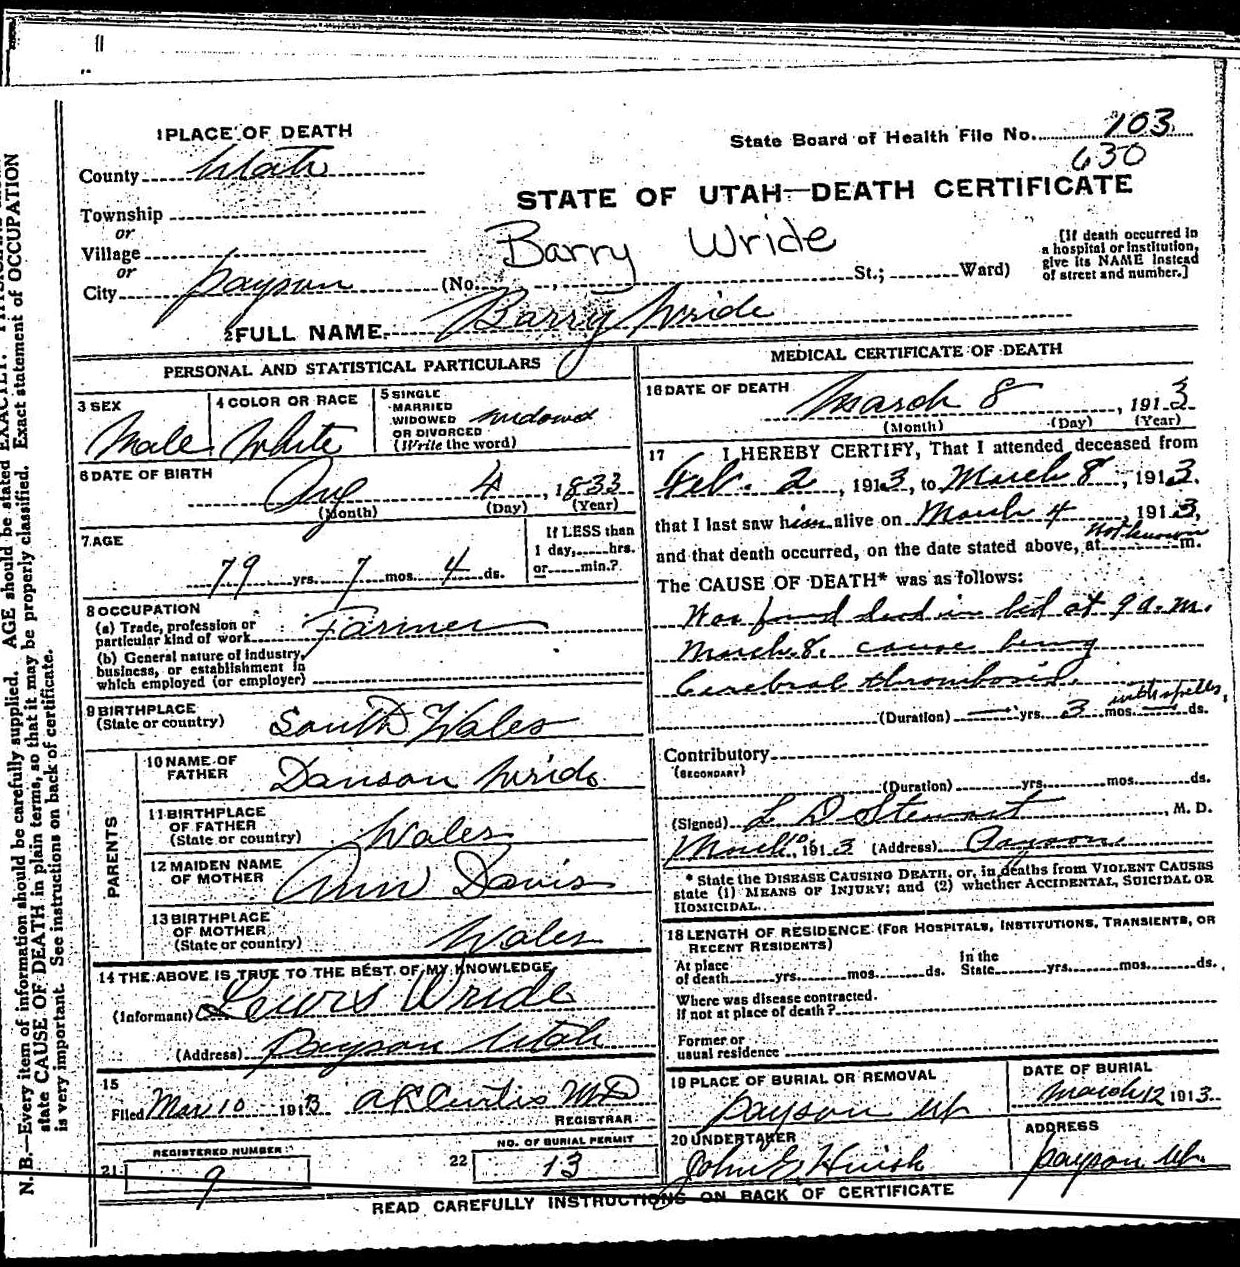 1 PLACE OF DEATH
County Utah
Township
or
Village
or
City Payson (No. St.; Ward)
State Board of Health File No. 103
630
STATE OF UTAH—DEATH CERTIFICATE
Barry Wride
[If death occurred in
a hospital or institution,
give its NAME instead
of street and number.]
2 FULL NAME Barry Wride
PERSONAL AND STATISTICAL PARTICULARS
3 SEX
Male
4 COLOR OR RACE
White
5 SINGLE
MARRIED
WIDOWED
OR DIVORCED
(Write the word)
Widowed
6 DATE OF BIRTH
Aug 4, 1833
(Month) (Day) (Year)
7 AGE
79 yrs. 7 mos. 4 ds.
If LESS than
1 day, hrs.
or min.?
8 OCCUPATION
(a) Trade, profession or
particular kind of work Farmer
(b) General nature of industry,
business, or establishment in
which employed (or employer)
9 BIRTHPLACE
(State or country) South Wales
PARENTS
10 NAME OF
FATHER Danson Wride
11 BIRTHPLACE
OF FATHER
(State or country) Wales
12 MAIDEN NAME
OF MOTHER Ann Davis
13 BIRTHPLACE
OF MOTHER
(State or country) Wales
14 THE ABOVE IS TRUE TO THE BEST OF MY KNOWLEDGE
(Informant) Lewis Wride
(Address) Payson Utah
15
Filed Mar 10 1913 A L Curtis MD
REGISTRAR
21 REGISTERED NUMBER
9
22 NO. OF BURIAL PERMIT
13
MEDICAL CERTIFICATE OF DEATH
16 DATE OF DEATH
March 8, 1913
(Month) (Day) (Year)
17 I HEREBY CERTIFY, That I attended deceased from
Feb. 2, 1913, to March 8, 1913.
that I last saw him alive on March 4, 1913,
and that death occurred, on the date stated above, at not known m.
The CAUSE OF DEATH* was as follows:
Was found dead in bed at 9 a.m.
March 8. cause being
Cerebral thrombosis.
(Duration) — yrs. 3 mos. — ds. with spells,
Contributory
(SECONDARY)
(Duration) yrs. mos. ds.
(Signed) L D Stewart, M. D.
March 10, 1913 (Address) Payson
* State the DISEASE CAUSING DEATH, or, in deaths from VIOLENT CAUSES
state (1) MEANS OF INJURY; and (2) whether ACCIDENTAL, SUICIDAL OR
HOMICIDAL.
18 LENGTH OF RESIDENCE (FOR HOSPITALS, INSTITUTIONS, TRANSIENTS, OR
RECENT RESIDENTS)
At place
of death yrs. mos. ds. In the
State yrs. mos. ds.
Where was disease contracted.
if not at place of death?
Former or
usual residence
19 PLACE OF BURIAL OR REMOVAL
Payson Ut
DATE OF BURIAL
March 12 1913
20 UNDERTAKER
John G. Huish
ADDRESS
Payson Ut.
READ CAREFULLY INSTRUCTIONS ON BACK OF CERTIFICATE
N. B.—Every item of information should be carefully supplied. AGE should be stated EXACTLY.
state CAUSE OF DEATH in plain terms, so that it may be properly classified. Exact statement of OCCUPATION
is very important. See instructions on back of certificate.